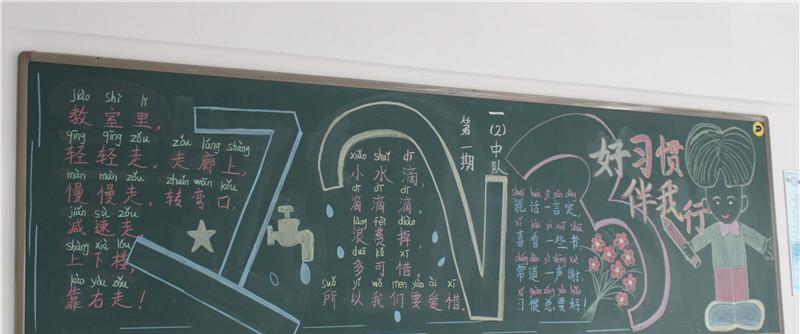 jiào shì lǐ
教室里，
qīng qīng zǒu zǒu láng shàng
轻轻走。走廊上，
màn màn zǒu zhuǎn wān kǒu
慢慢走，转弯口，
jiǎn sù zǒu
减速走。
shàng xià lóu
上下楼，
kào yòu zǒu
靠右走！
1
2
3
xiǎo shuǐ dī
小水滴，
dī dī
滴滴滴。
làng fèi diào
浪费掉，
duō kě xī
多可惜。
suǒ yǐ wǒ men yào ài xī
所以我们要爱惜。
第一期
一(2)中队
好习惯
伴我行
说话一言定，
喜看一些书，
常道一声谢，
习惯总要好！